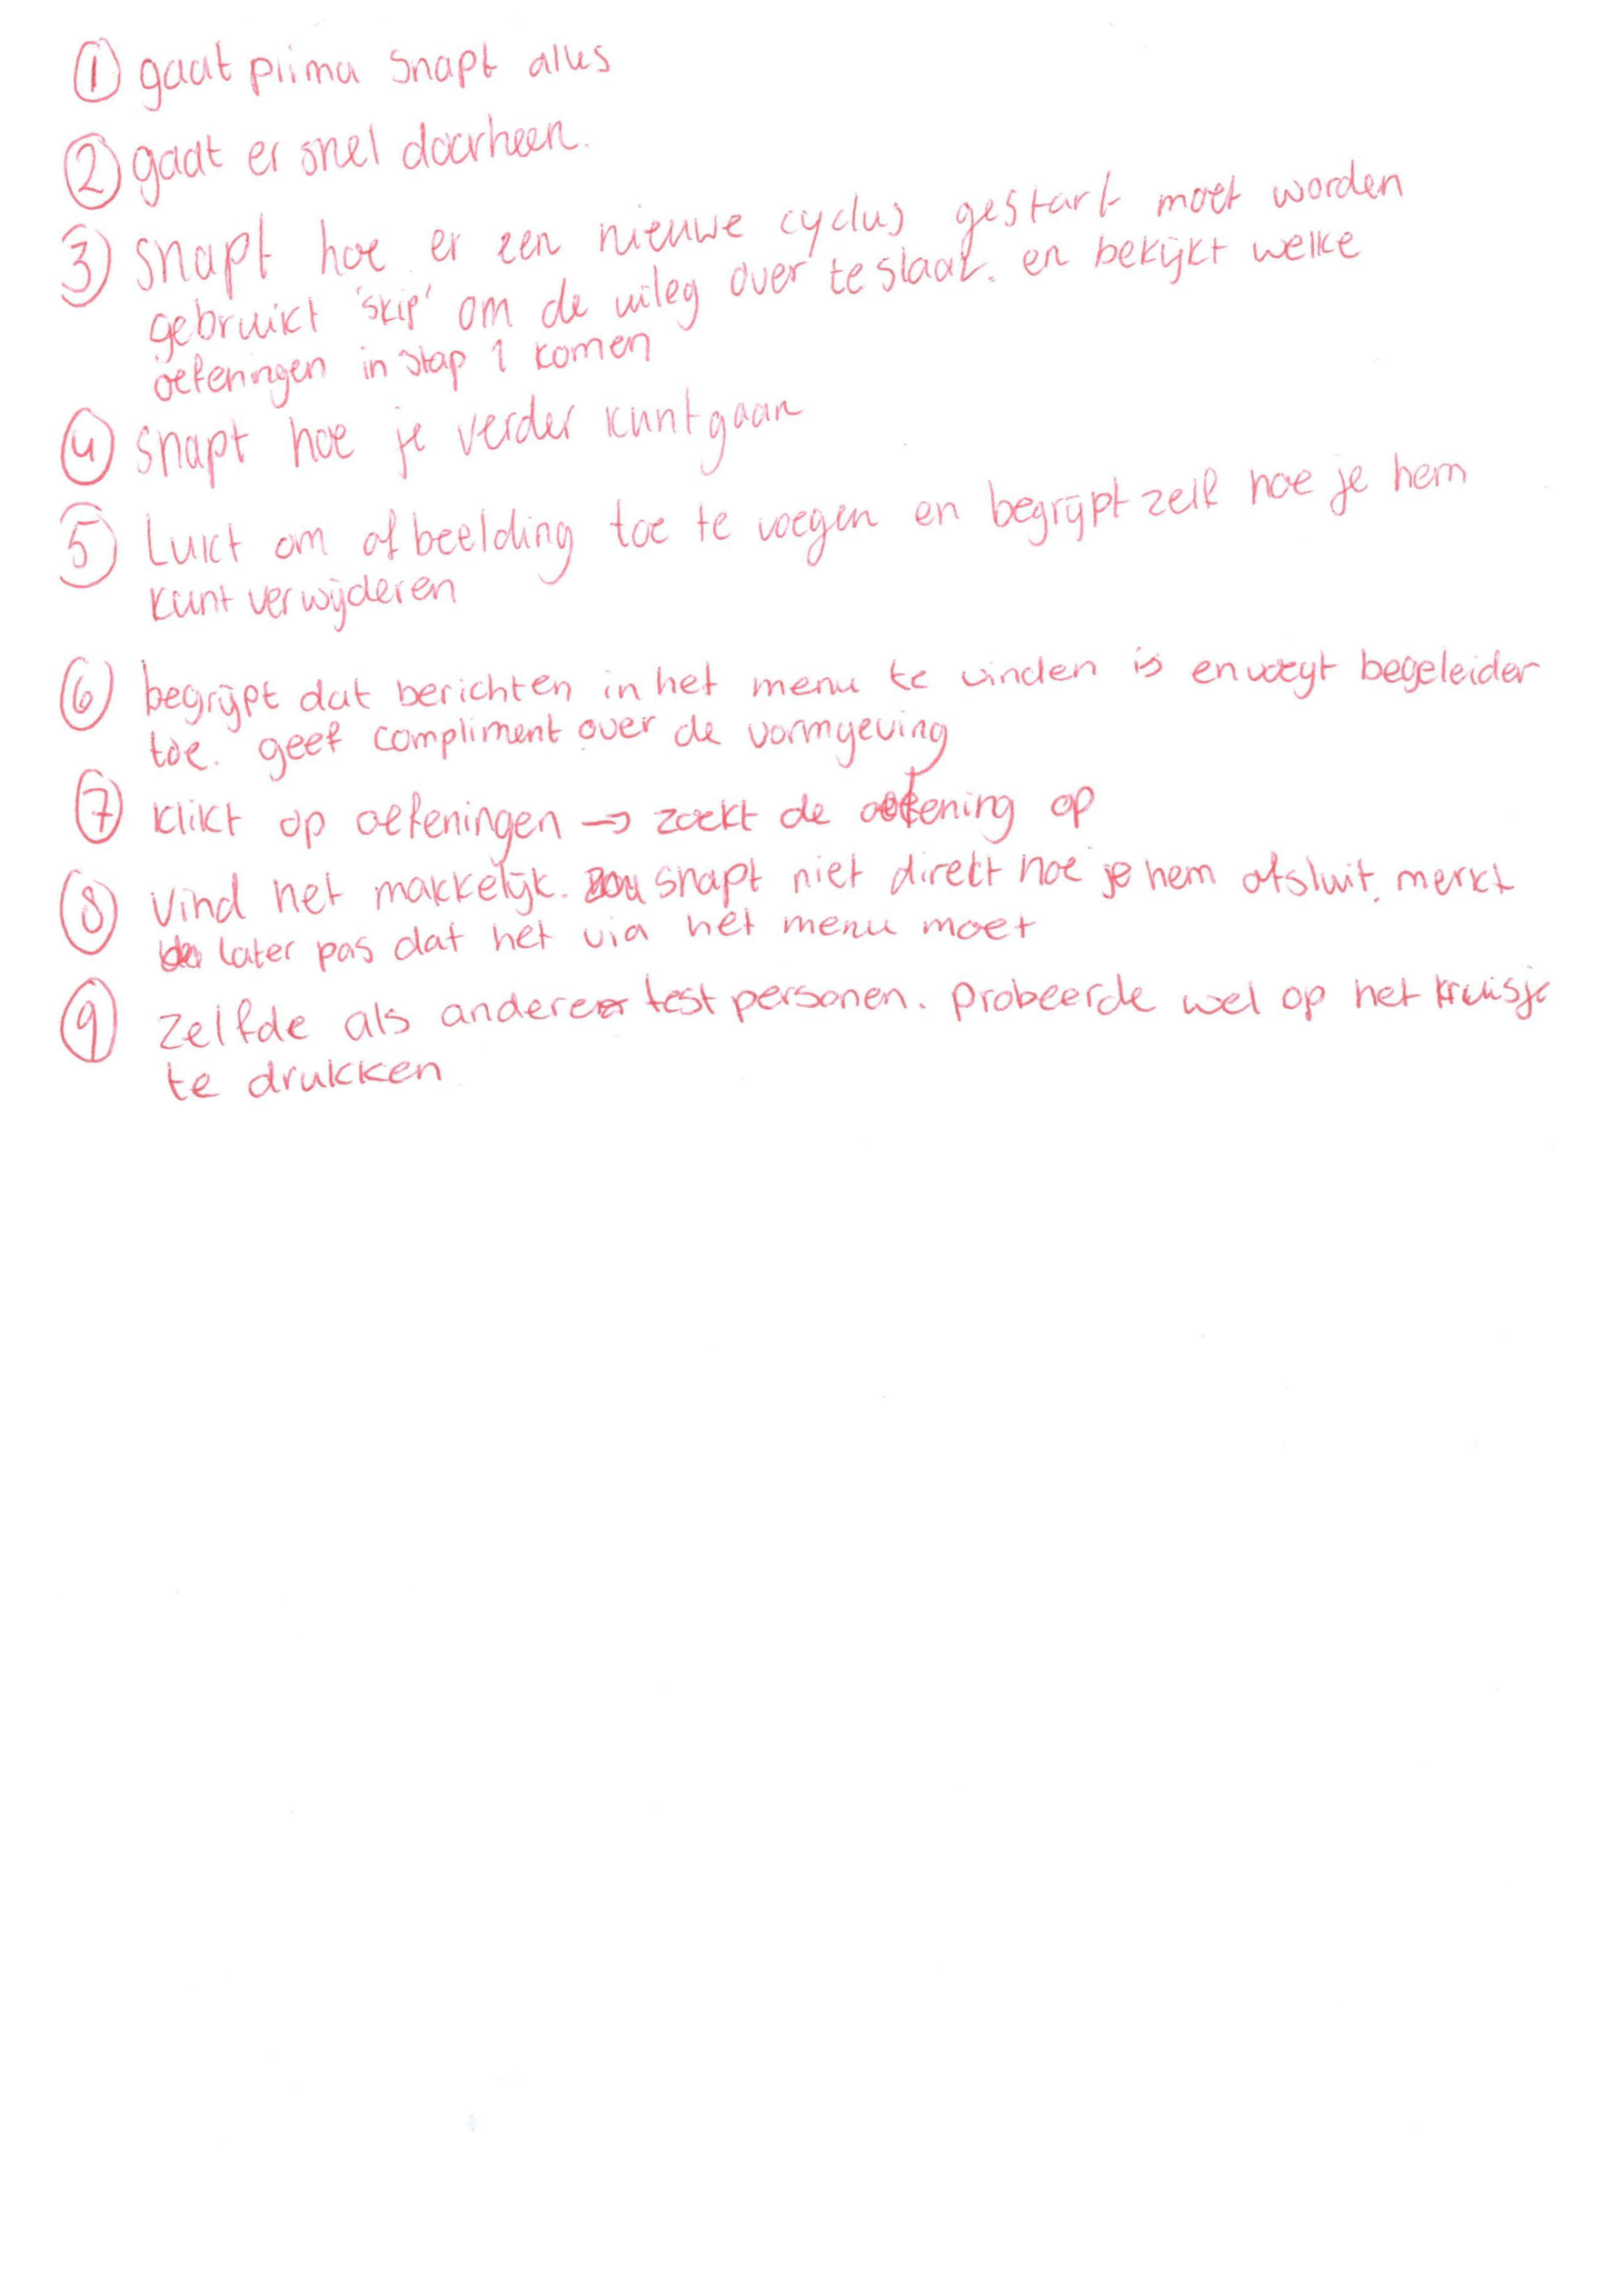 ① gaat prima snapt alles
② gaat er snel doorheen.
③ snapt hoe er een nieuwe cyclus gestart moet worden
gebruikt 'skip' om de uileg over te slaat. en bekijkt welke
oefeningen in stap 1 komen
④ snapt hoe je verder kunt gaan
⑤ Lukt om afbeelding toe te voegen en begrijpt zelf hoe je hem
kunt verwijderen
⑥ begrijpt dat berichten in het menu te vinden is en voegt begeleider
toe. geef compliment over de vormgeving
⑦ klikt op oefeningen → zoekt de oefening op
⑧ Vind het makkelijk. snapt niet direct hoe je hem afsluit. merkt
later pas dat het via het menu moet
⑨ zelfde als andere test personen. probeerde wel op het kruisje
te drukken